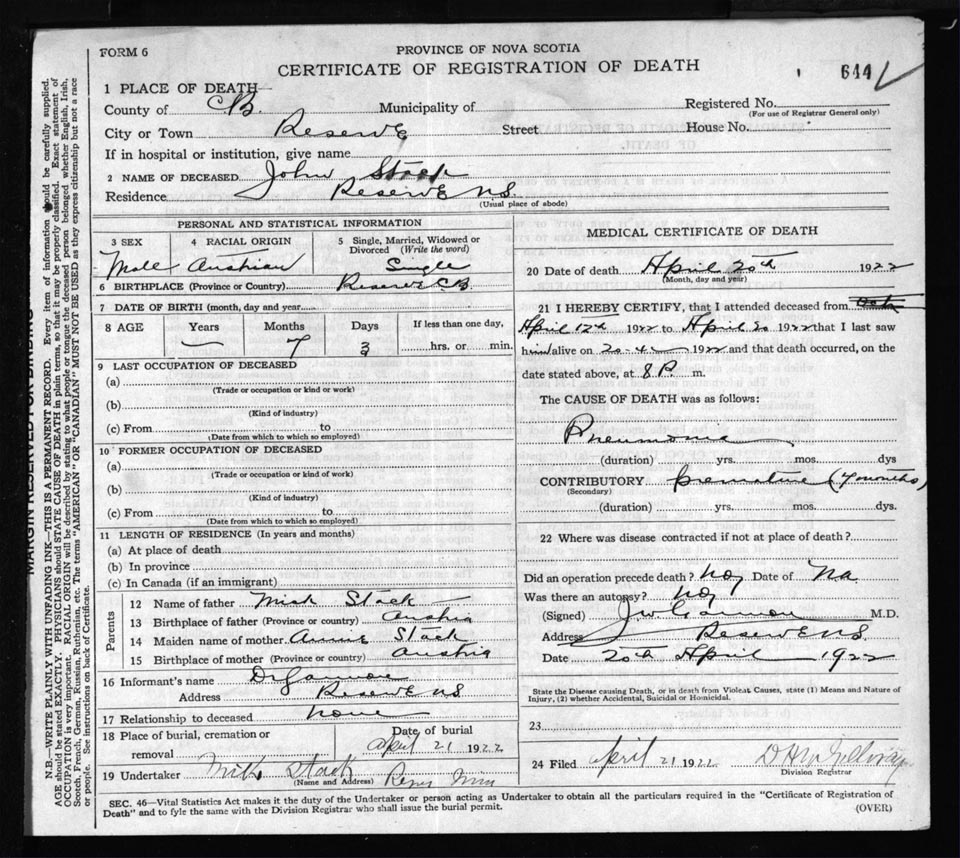 FORM 6
PROVINCE OF NOVA SCOTIA
CERTIFICATE OF REGISTRATION OF DEATH
644
1 PLACE OF DEATH
County of C.B. Municipality of
Registered No.
(For use of Registrar General only)
City or Town Reserve Street House No.
If in hospital or institution, give name
2 NAME OF DECEASED John Stack
Residence Reserve N.S.
(Usual place of abode)
PERSONAL AND STATISTICAL INFORMATION
3 SEX
Male
4 RACIAL ORIGIN
Austrian
5 Single, Married, Widowed or Divorced (Write the word)
Single
6 BIRTHPLACE (Province or Country) Reserve C.B.
7 DATE OF BIRTH (month, day and year
8 AGE Years Months Days If less than one day,
— 7 3 hrs. or min.
9 LAST OCCUPATION OF DECEASED
(a)
(Trade or occupation or kind or work)
(b)
(Kind of industry)
(c) From to
(Date from which to which so employed)
10 FORMER OCCUPATION OF DECEASED
(a)
(Trade or occupation or kind of work)
(b)
(Kind of industry)
(c) From to
(Date from which to which so employed)
11 LENGTH OF RESIDENCE (In years and months)
(a) At place of death
(b) In province
(c) In Canada (if an immigrant)
Parents
12 Name of father Stack
13 Birthplace of father (Province or country) Austria
14 Maiden name of mother Annie Stack
15 Birthplace of mother (Province or country) Austria
16 Informant's name Dr
Address Reserve N.S.
17 Relationship to deceased none
18 Place of burial, cremation or removal
Date of burial
April 21 1922
19 Undertaker Stack
(Name and Address)
MEDICAL CERTIFICATE OF DEATH
20 Date of death April 20th 1922
(Month, day and year)
21 I HEREBY CERTIFY, that I attended deceased from
April 12th 1922 to April 20 1922 that I last saw
him alive on 20-4- 1922 and that death occurred, on the
date stated above, at 8 P. m.
The CAUSE OF DEATH was as follows:
Pneumonia
(duration) yrs. mos. dys
CONTRIBUTORY premature (7 months)
(Secondary)
(duration) yrs. mos. dys.
22 Where was disease contracted if not at place of death?
Did an operation precede death? no, Date of Na
Was there an autopsy? no,
(Signed) M.D.
Address Reserve N.S.
Date 20th April 1922
State the Disease causing Death, or in death from Violent Causes, state (1) Means and Nature of
Injury, (2) whether Accidental, Suicidal or Homicidal.
23
24 Filed April 21 1922
Division Registrar
SEC. 46—Vital Statistics Act makes it the duty of the Undertaker or person acting as Undertaker to obtain all the particulars required in the "Certificate of Registration of
Death" and to fyle the same with the Division Registrar who shall issue the burial permit.
(OVER)
MARGIN RESERVED FOR BINDING
N.B.—WRITE PLAINLY WITH UNFADING INK—THIS IS A PERMANENT RECORD. Every item of information should be carefully supplied.
AGE should be stated EXACTLY. PHYSICIANS should STATE CAUSE OF DEATH in plain terms, so that it may be properly classified. Exact statement of
OCCUPATION is very important. RACIAL ORIGIN will be described by stating to what people or tongue the deceased person belonged whether English, Irish,
Scotch, French, German, Russian, Ruthenian, etc. The terms "AMERICAN" OR "CANADIAN" MUST NOT BE USED as they express citizenship but not a race
or people. See instructions on back of Certificate.